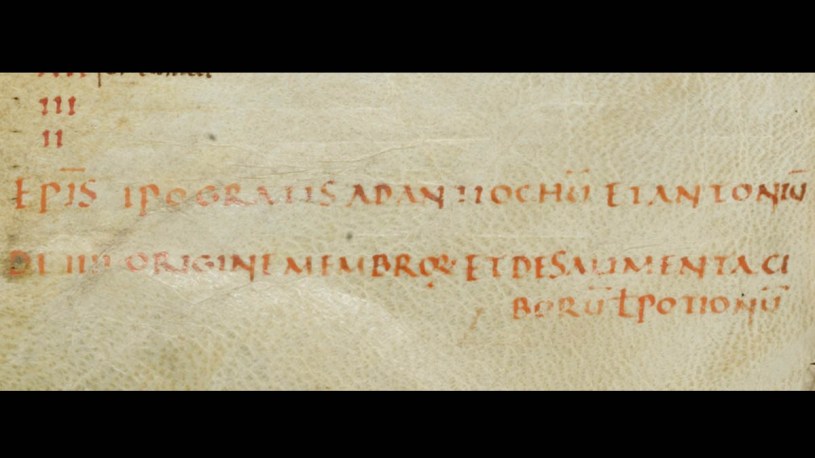 III
II
EPĪS IPOGRATIS AD ANTIOCHŪ ET ANTONIŪ
DE IIII ORIGINE MEMBROꝜ ET DE SALIMENTA CI
BORŪ ET POTIONŪ